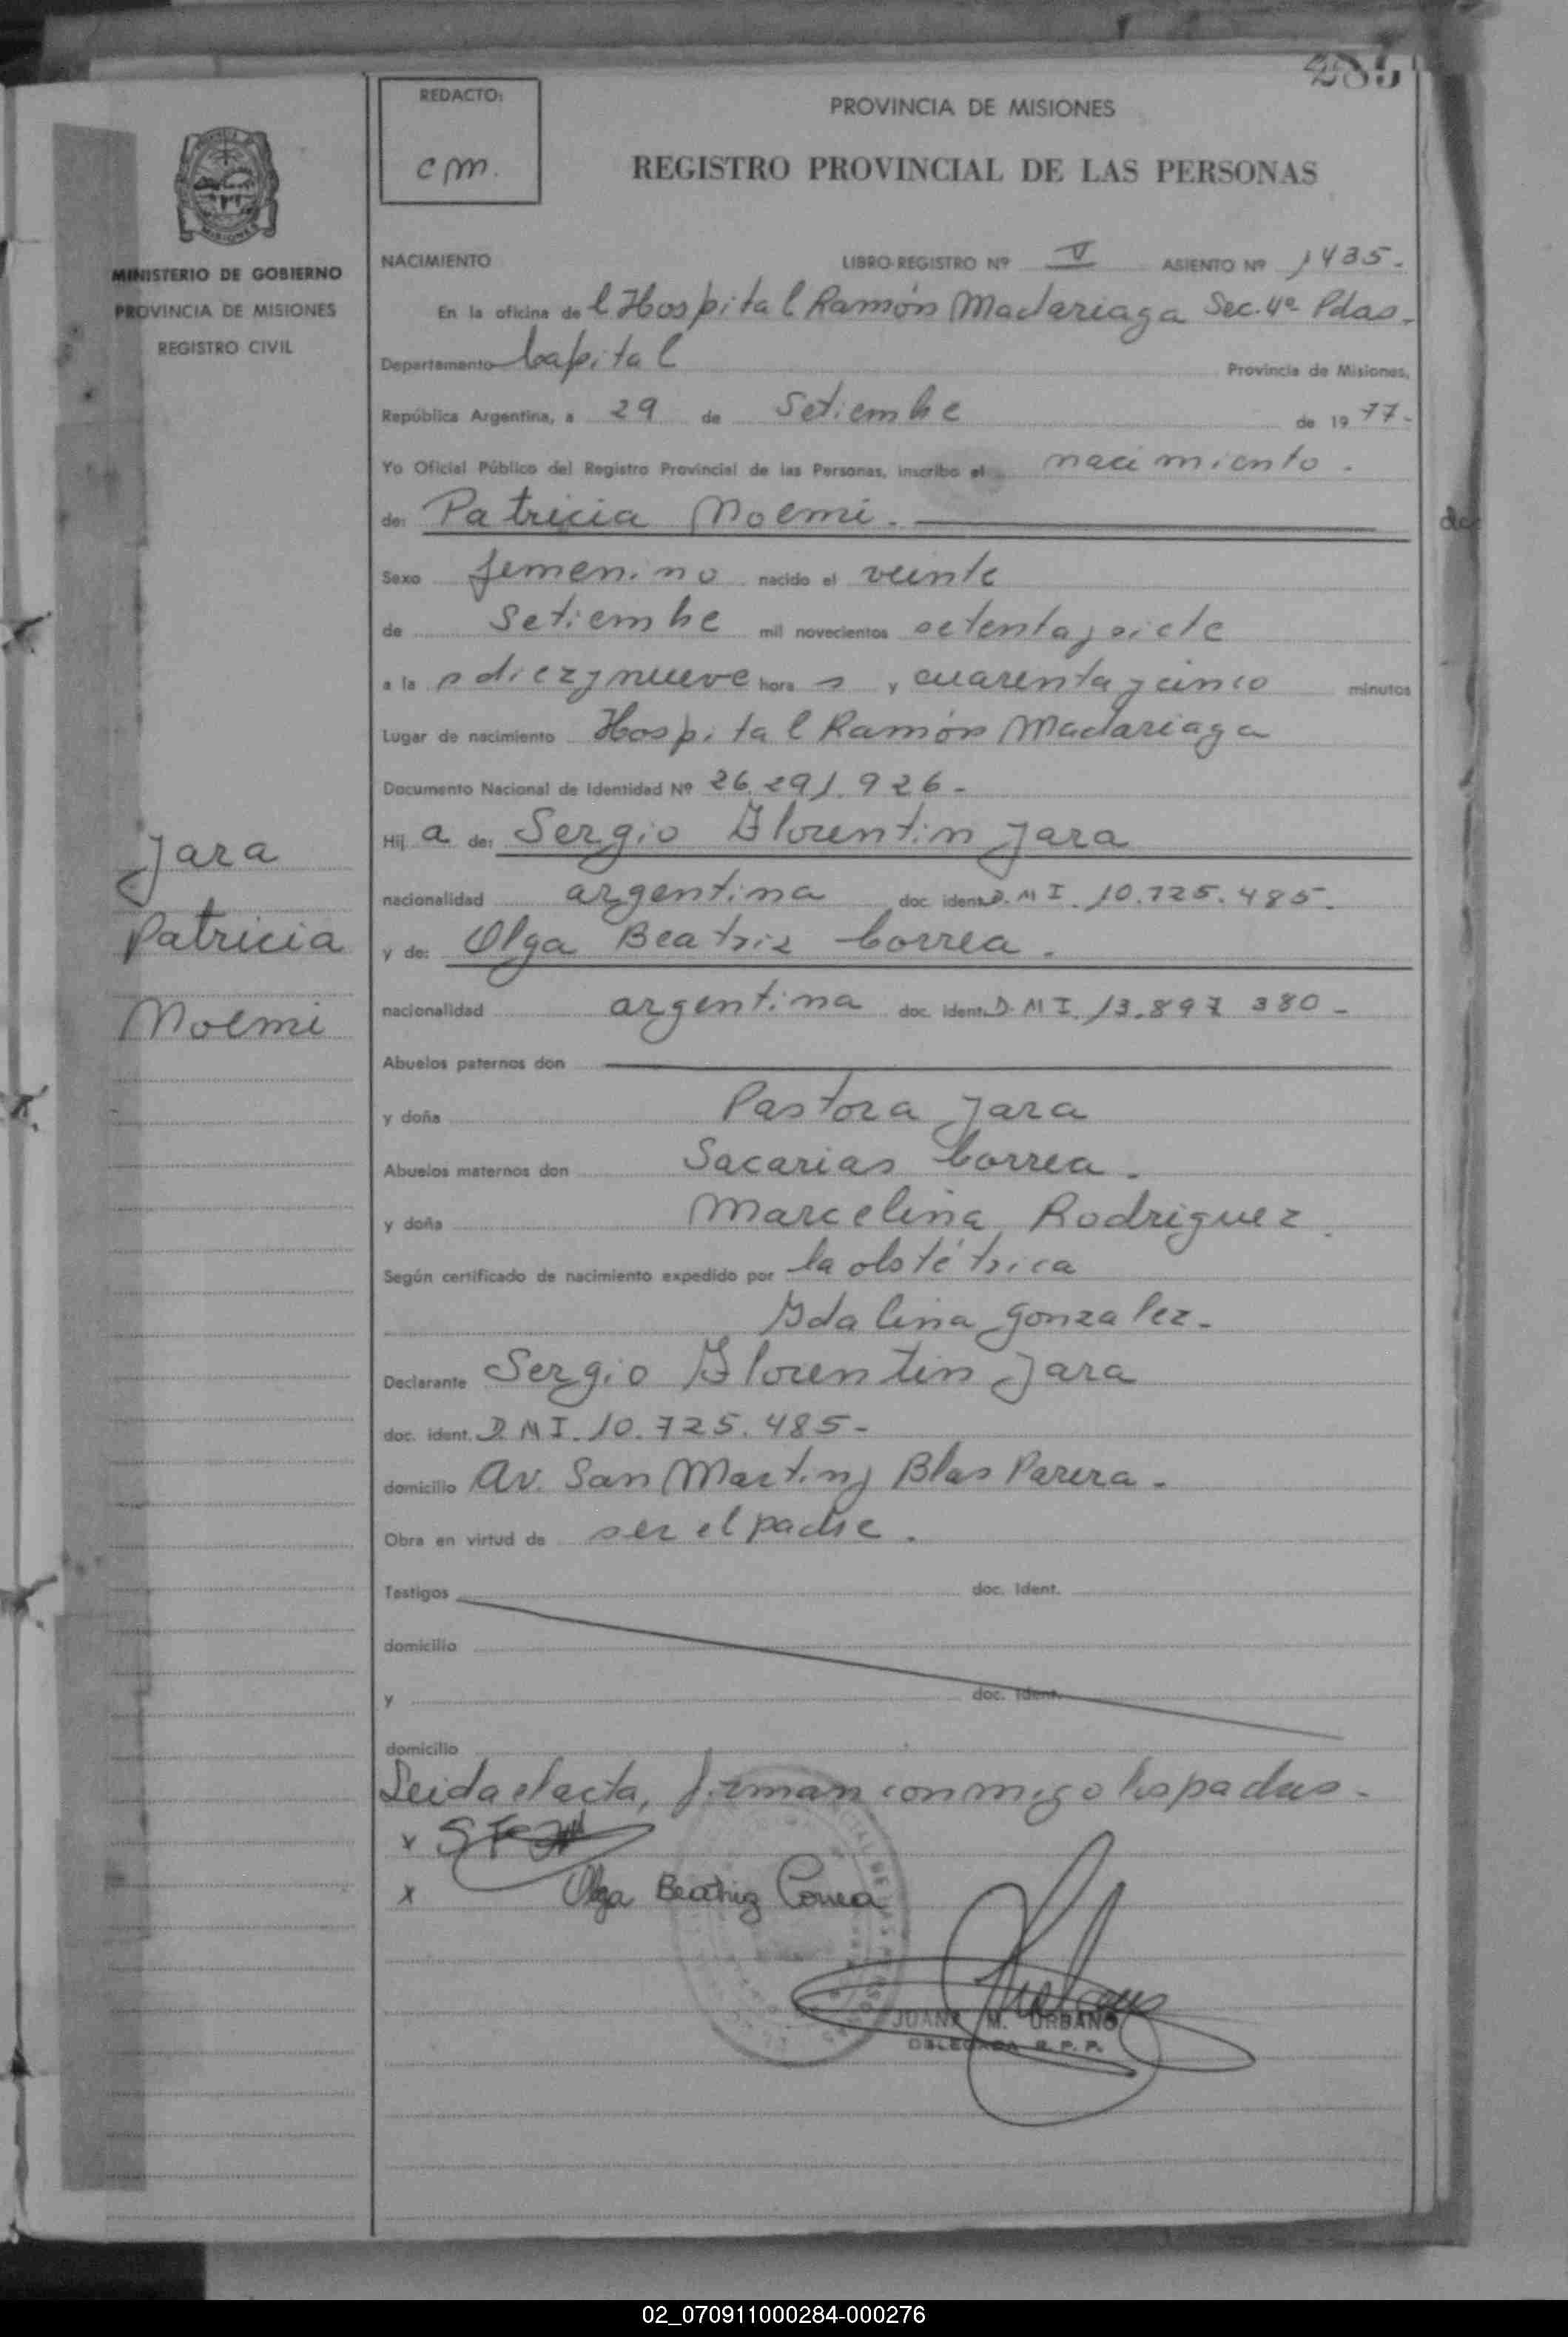 285
REDACTO:
cm.
PROVINCIA DE MISIONES
REGISTRO PROVINCIAL DE LAS PERSONAS
MISIONES
MINISTERIO DE GOBIERNO
PROVINCIA DE MISIONES
REGISTRO CIVIL
NACIMIENTO LIBRO-REGISTRO Nº V ASIENTO Nº 1435.
En la oficina de l Hospital Ramón Madariaga Sec. 4ª Pdas.
Departamento Capital Provincia de Misiones,
República Argentina, a 29 de Setiembre de 19 77-
Yo Oficial Público del Registro Provincial de las Personas, inscribo el nacimiento.
de: Patricia Noemi.
Sexo femenino nacido el veinte
de Setiembre mil novecientos setenta y siete
a la s diez y nueve hora s y cuarenta y cinco minutos
Lugar de nacimiento Hospital Ramón Madariaga
Documento Nacional de Identidad Nº 26.291.926-
Hij a de: Sergio Florentin Jara
nacionalidad argentina doc. ident. D.N I. 10.725.485-
y de: Olga Beatriz Correa.
nacionalidad argentina doc. ident. D.N I. 13.897 380-
Abuelos paternos don
y doña Pastora Jara
Abuelos maternos don Sacarias Correa.
y doña Marcelina Rodriguez.
Según certificado de nacimiento expedido por la obstétrica
Idalina Gonzalez.
Declarante Sergio Florentin Jara
doc. ident. D.N I. 10.725.485-
domicilio Av. San Martin y Blas Parera.
Obra en virtud de ser el padre.
Testigos doc. Ident.
domicilio
y doc. Ident.
domicilio
Leida el acta, firman conmigo los padres.
x
x Olga Beatriz Correa
JUANA M. URBANO
DELEGADA R. P. P.
Jara
Patricia
Noemi
02_070911000284-000276